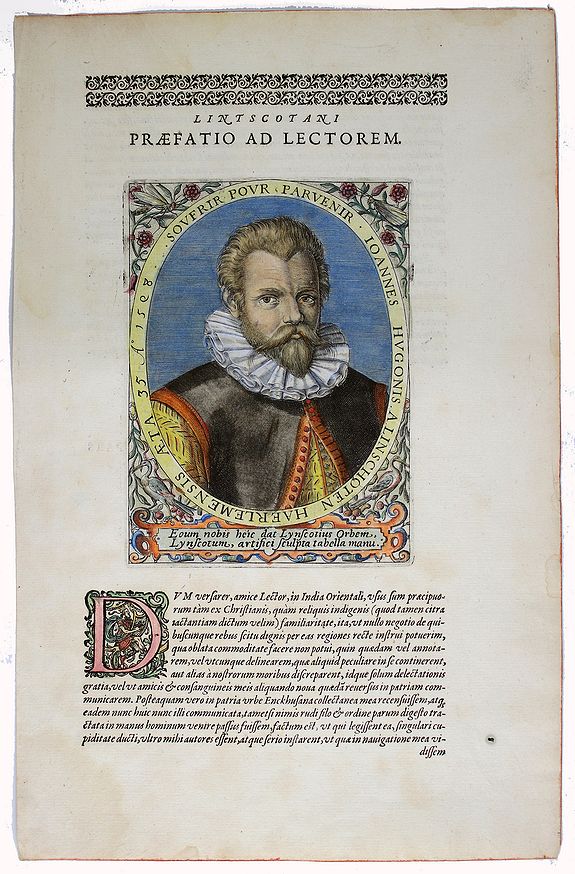 LINTSCOTANI
PRÆFATIO AD LECTOREM.
SOVFRIR POVR PARVENIR · IOANNES HVGONIS A LINSCHOTEN HAERLEMENSIS ÆTA 35 A° 1598
Eoum nobis heic dat Lynscotius Orbem,
Lynscotum, artifici sculpta tabella manu.
DVM versarer, amice Lector, in India Orientali, vsus sum præcipuo-
rum tàm ex Christianis, quàm reliquis indigenis (quod tamen citra
iactantiam dictum velim) familiaritate, ita, vt nullo negotio de qui-
buscunque rebus scitu dignis per eas regiones recte instrui potuerim,
qua oblata commoditate facere non potui, quin quædam vel annota-
rem, vel vtcunque delinearem, quæ aliquid peculiare in se continerent,
aut alias à nostrorum moribus discreparent, idque solum delectationis
gratia, vel vt amicis & consanguineis meis aliquando noua quædã reuersus in patriam com-
municarem. Posteaquam vero in patria vrbe Enckhusana collectanea mea recensuissem, atq;
eadem nunc huic nunc illi communicata, tametsi nimis rudi stilo & ordine parum digesto tra-
ctata in manus hominum venire passus fuissem, factum est, vt qui legissent ea, singulari cu-
piditate ducti, vltro mihi autores essent, atque serio instarent, vt quæ in nauigatione mea vi-
dissem